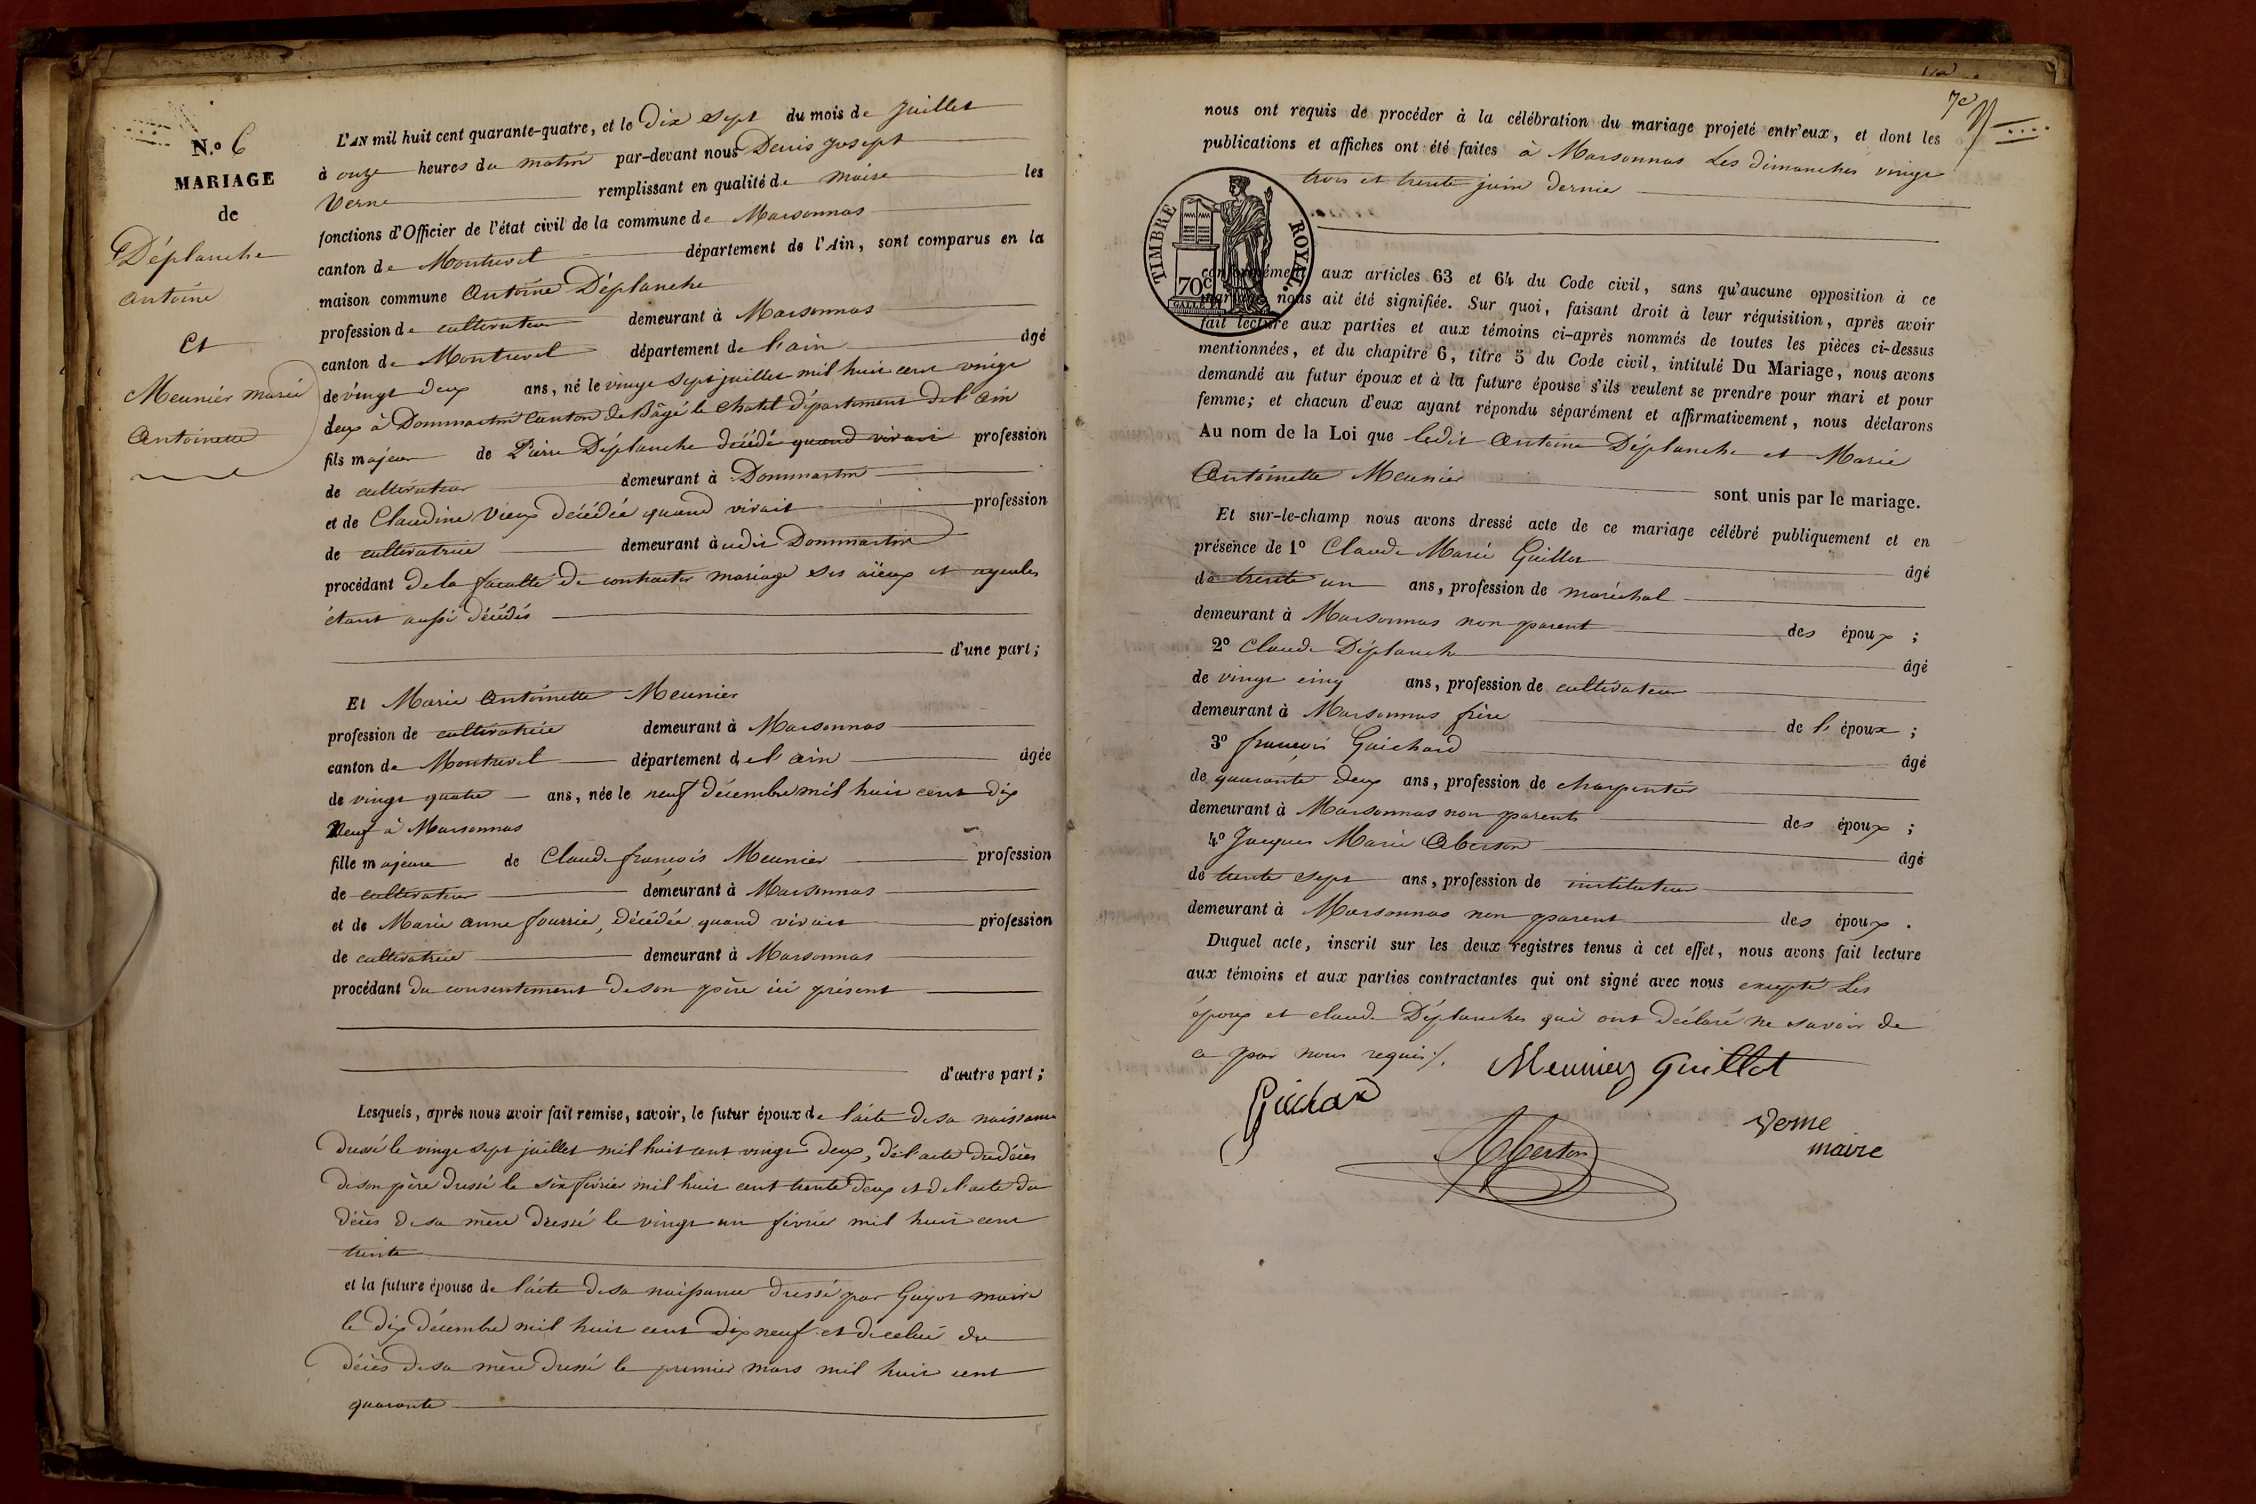 N.o 6
MARIAGE
de
Déplanche
antoine
et
Meunier marie
antoinette
L'AN mil huit cent quarante-quatre, et le dix sept du mois de juillet
à onze heures du matin par-devant nous Denis josept
Verne remplissant en qualité de maire les
fonctions d'Officier de l'état civil de la commune de Marsonnas
canton de Montrevel département de l'Ain, sont comparus en la
maison commune antoine Déplanche
profession de cultivateur demeurant à Marsonnas
canton de Montrevel département de l'ain âgé
de vingt deux ans, né le vingt sept juillet mil huit cent vingt
deux à Dommartin canton de Bâgé le chatel département de l'ain
fils majeur de Pierre Déplanche décédé quand vivait profession
de cultivateur demeurant à Dommartin
et de Claudine Vieux décédée quand vivait profession
de cultivatrice demeurant à udit Dommartin
procédant de la faculté de contracter mariage ses aïeux et ayeules
étant aussi décédés
d'une part;
Et Marie antoinette Meunier
profession de cultivatrice demeurant à Marsonnas
canton de Montrevel département de l'ain âgée
de vingt quatre ans, née le neuf décembre mil huit cent dix
neuf à Marsonnas
fille majeure de Claude françois Meunier profession
de cultivateur demeurant à Marsonnas
et de Marie anne fourrier, décédée quand vivait profession
de cultivatrice demeurant à Marsonnas
procédant du consentement de son père ici présent
d'autre part;
Lesquels, après nous avoir fait remise, savoir, le futur époux de l'acte de sa naissance
dressé le vingt sept juillet mil huit cent vingt deux, de l'acte du décès
de son père dressé le six février mil huit cent trente deux et de l'acte du
décès de sa mère dressé le vingt un février mil huit cent
trente
et la future épouse de l'acte de sa naissance dressé par Guyot maire
le dix décembre mil huit cent dix neuf et de celui du
décès de sa mère dressé le premier mars mil huit cent
quarante
nous ont requis de procéder à la célébration du mariage projeté entr'eux, et dont les
publications et affiches ont été faites à Marsonnas les dimanches vingt
trois et trente juin dernier
TIMBRE ROYAL.
70c
conformément aux articles 63 et 64 du Code civil, sans qu'aucune opposition à ce
mariage nous ait été signifiée. Sur quoi, faisant droit à leur réquisition, après avoir
fait lecture aux parties et aux témoins ci-après nommés de toutes les pièces ci-dessus
mentionnées, et du chapitre 6, titre 5 du Code civil, intitulé Du Mariage, nous avons
demandé au futur époux et à la future épouse s'ils veulent se prendre pour mari et pour
femme; et chacun d'eux ayant répondu séparément et affirmativement, nous déclarons
Au nom de la Loi que ledit antoine Déplanche et Marie
antoinette Meunier sont unis par le mariage.
Et sur-le-champ nous avons dressé acte de ce mariage célébré publiquement et en
présence de 1o Claude Marie Guillot âgé
de trente un ans, profession de maréchal
demeurant à Marsonnas non parent des époux ;
2o Claude Déplanche âgé
de vingt cinq ans, profession de cultivateur
demeurant à Marsonnas frère de l' époux ;
3o françois Guichard âgé
de quarante deux ans, profession de charpentier
demeurant à Marsonnas non parent des époux ;
4o Jacques Marie Aberson âgé
de trente sept ans, profession de instituteur
demeurant à Marsonnas non parent des époux .
Duquel acte, inscrit sur les deux registres tenus à cet effet, nous avons fait lecture
aux témoins et aux parties contractantes qui ont signé avec nous excepté les
époux et claude Déplanches qui ont déclaré ne savoir de
ce par nous requis /.
Meunier Guillot
Guichard
Verne
maire